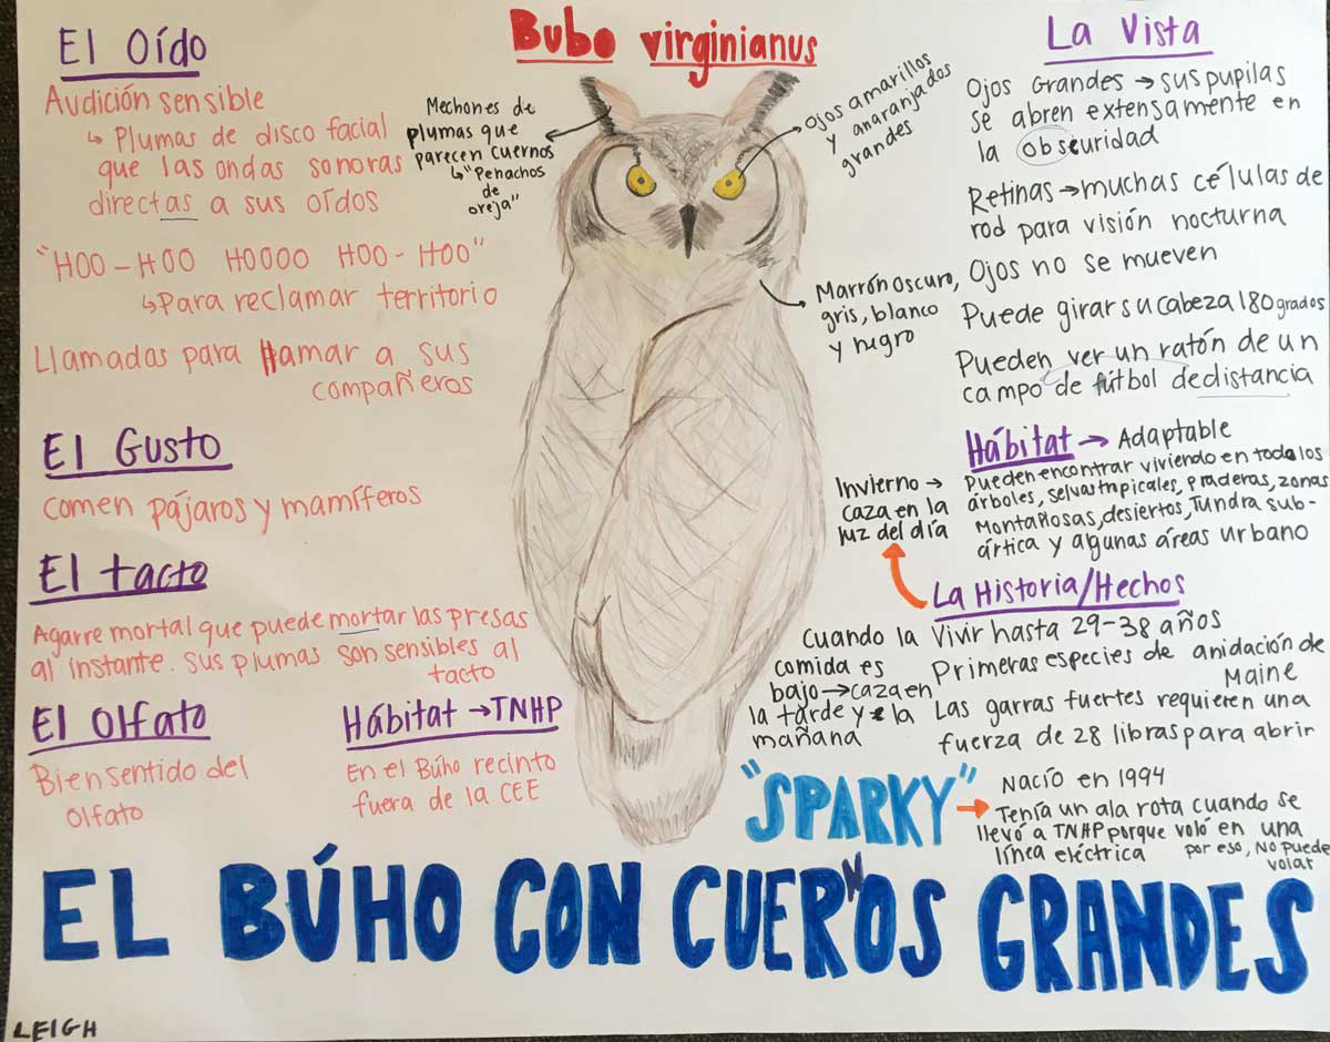 Bubo virginianus
El Oído
Audición sensible
↳ Plumas de disco facial
que las ondas sonoras
directas a sus oídos
"HOO-HOO HOOOO HOO-HOO"
↳Para reclamar territorio
Llamadas para llamar a sus
compañeros
El Gusto
Comen pájaros y mamíferos
El tacto
Agarre mortal que puede mortar las presas
al instante. Sus plumas son sensibles al
tacto
El Olfato
Bien sentido del
olfato
Hábitat →TNHP
En el Búho recinto
fuera de la CEE
Mechones de
plumas que
parecen cuernos
↳"Penachos
de
oreja"
Ojos amarillos
y anaranjados
grandes
Marrón oscuro,
gris, blanco
y negro
La Vista
Ojos Grandes → sus pupilas
se abren extensamente en
la obscuridad
Retinas→muchas células de
rod para visión nocturna
Ojos no se mueven
Puede girar su cabeza 180 grados
Pueden ver un ratón de un
campo de fútbol de distancia
Hábitat → Adaptable
Pueden encontrar viviendo en toda los
árboles, selvas tropicales, praderas, zonas
Montañosas, desiertos, Tundra sub-
ártica y algunas áreas urbano
La Historia/Hechos
Vivir hasta 29-38 años
Primeras especies de anidación de
Maine
Las garras fuertes requieren una
fuerza de 28 libras para abrir
Invierno →
caza en la
luz del día
Cuando la
comida es
bajo→caza en
la tarde y la
mañana
"SPARKY" →
Nacío en 1994
Tenía un ala rota cuando se
llevó a TNHP porque voló en una
línea eléctrica
por eso, No puede
volar
EL BÚHO CON CUERNOS GRANDES
LEIGH